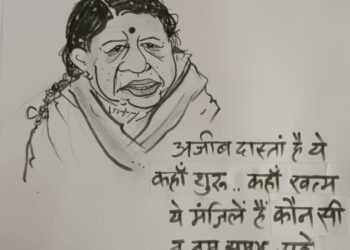 अजीब दास्तां है ये
कहाँ शुरू .. कहाँ खत्म
ये मंजिलें हैं कौन सी